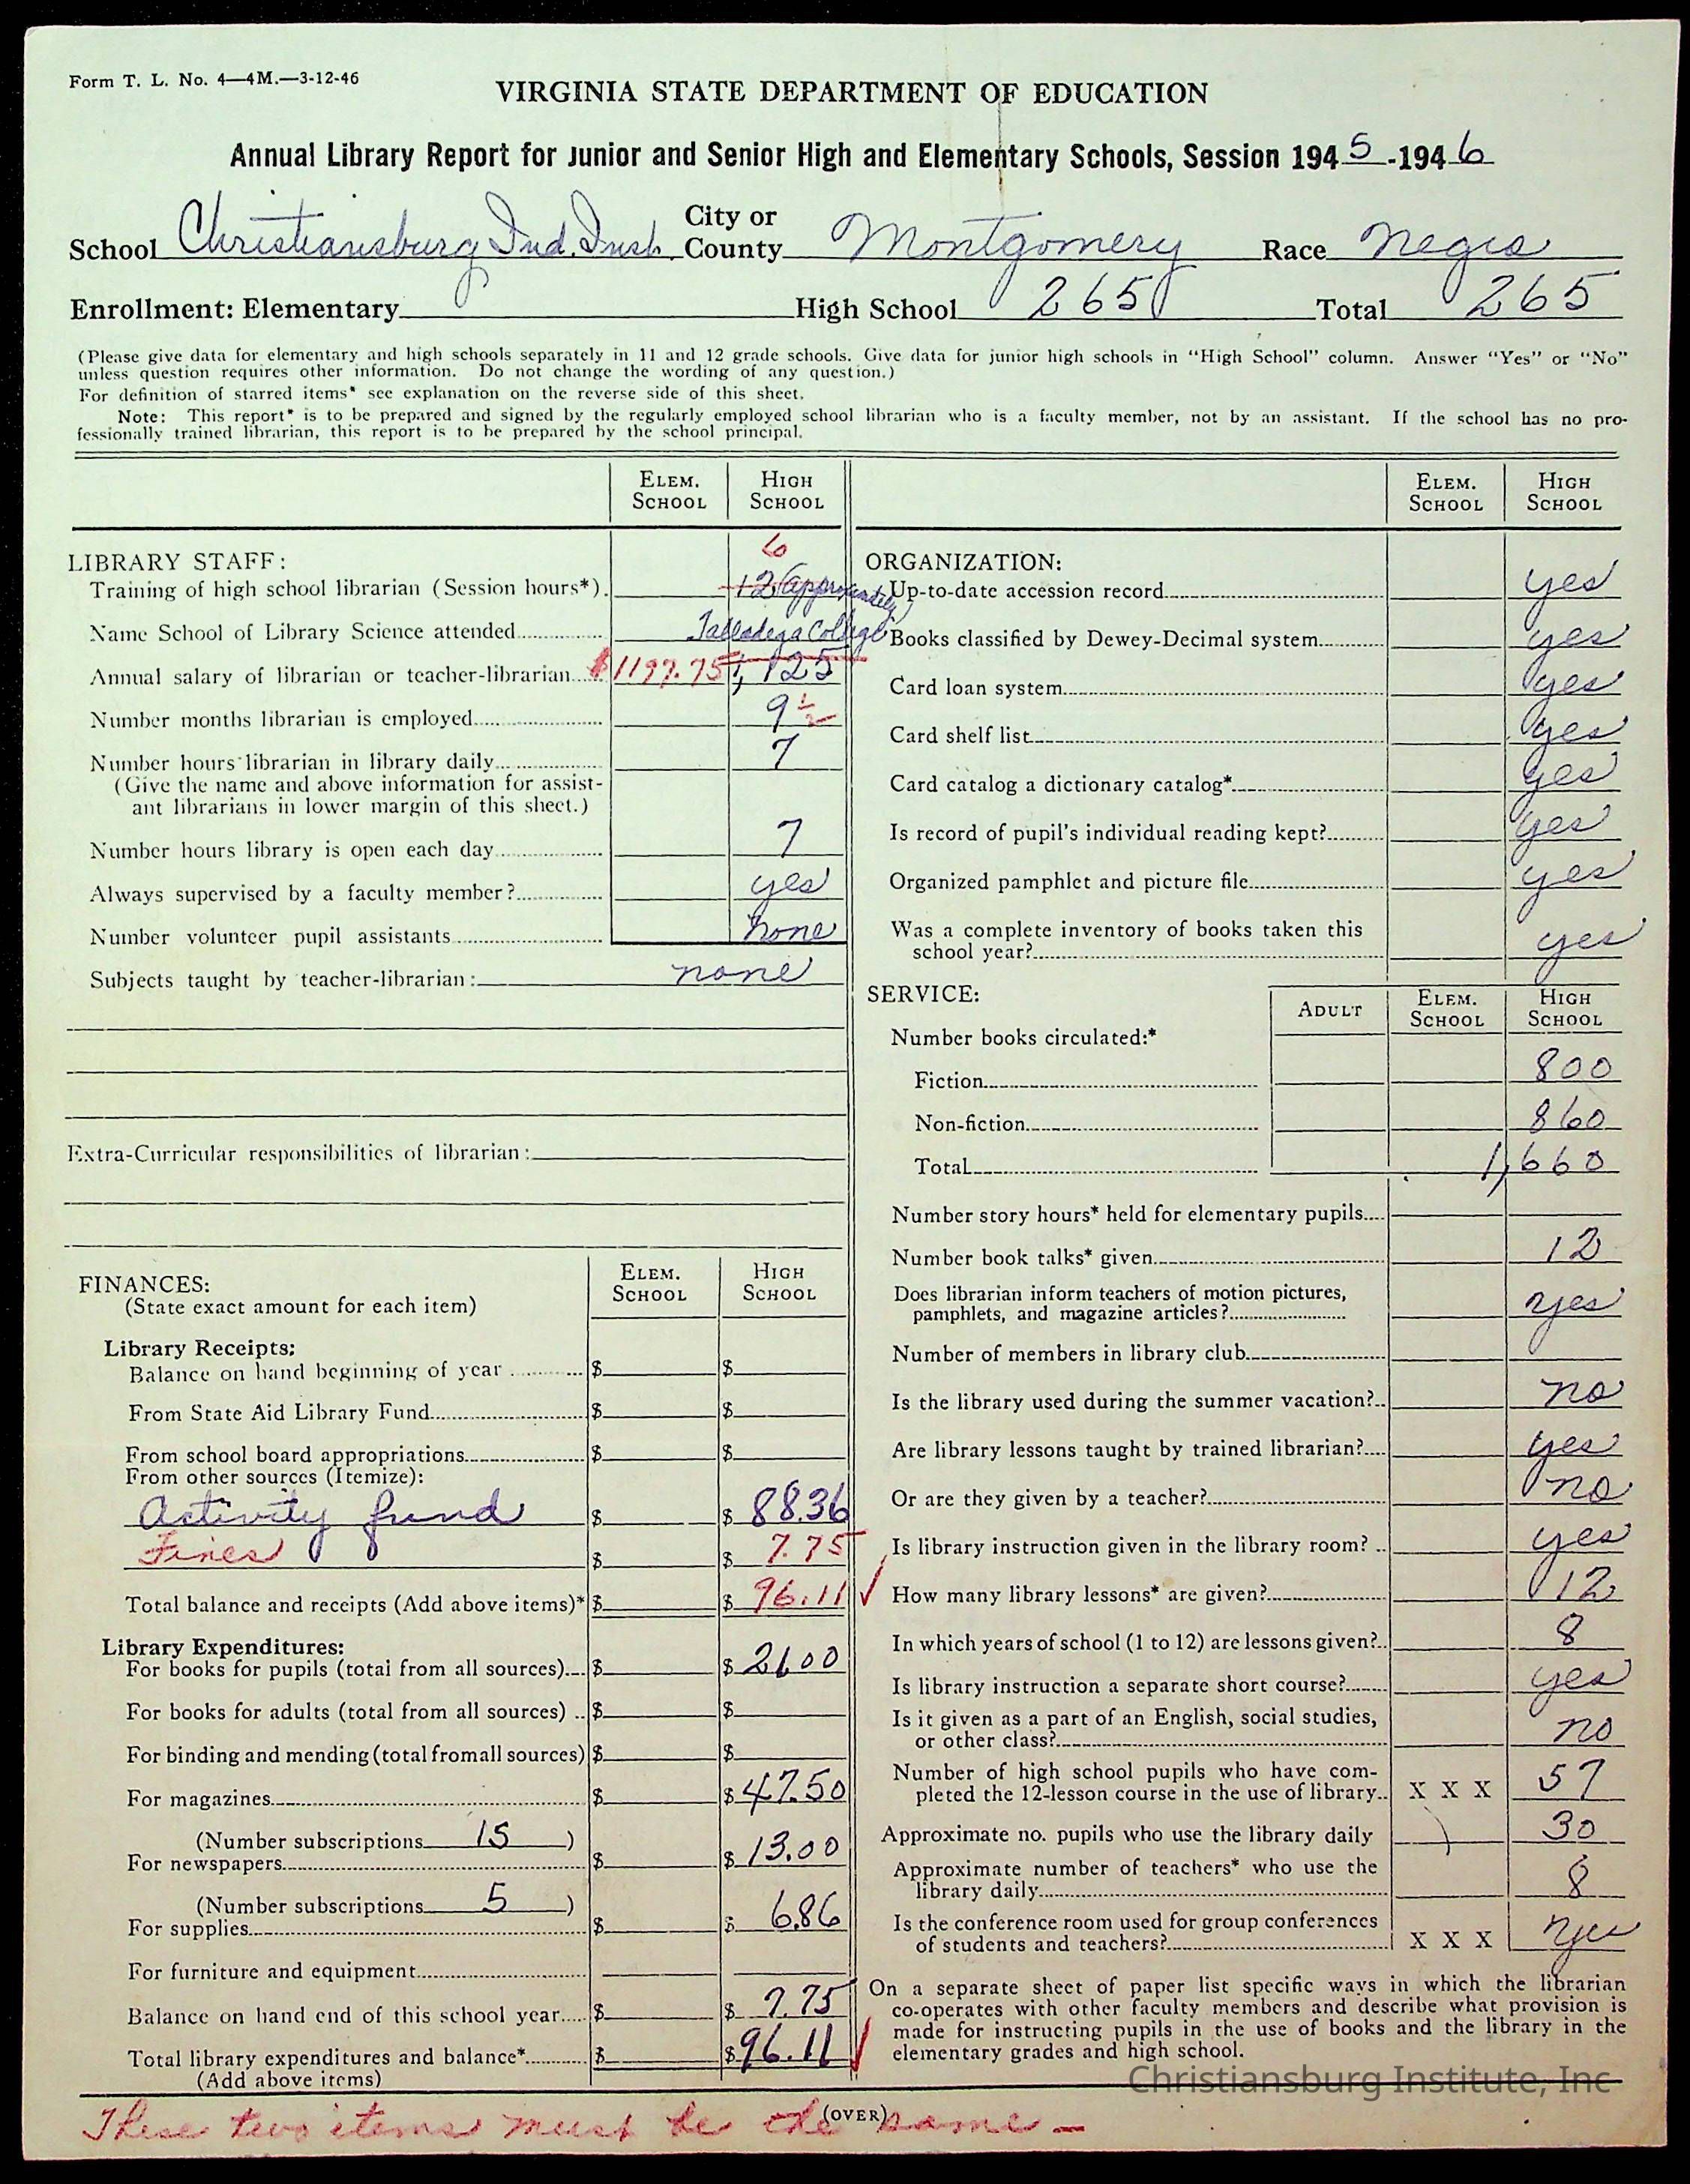 Form T. L. No. 4—4M.—3-12-46
VIRGINIA STATE DEPARTMENT OF EDUCATION
Annual Library Report for Junior and Senior High and Elementary Schools, Session 1945-1946
School Christiansburg Ind. Inst. City or County Montgomery Race Negro
Enrollment: Elementary High School 265 Total 265
(Please give data for elementary and high schools separately in 11 and 12 grade schools. Give data for junior high schools in "High School" column. Answer "Yes" or "No"
unless question requires other information. Do not change the wording of any question.)
For definition of starred items* see explanation on the reverse side of this sheet.
Note: This report* is to be prepared and signed by the regularly employed school librarian who is a faculty member, not by an assistant. If the school has no pro-
fessionally trained librarian, this report is to be prepared by the school principal.
ELEM. SCHOOL HIGH SCHOOL
LIBRARY STAFF:
6
Training of high school librarian (Session hours*). 12 (approximately)
Name School of Library Science attended Talladega College
Annual salary of librarian or teacher-librarian $1197.75 1,125
Number months librarian is employed 9 1/2
Number hours librarian in library daily 7
(Give the name and above information for assist-
ant librarians in lower margin of this sheet.)
Number hours library is open each day 7
Always supervised by a faculty member? yes
Number volunteer pupil assistants none
Subjects taught by teacher-librarian: none
Extra-Curricular responsibilities of librarian:
FINANCES: ELEM. SCHOOL HIGH SCHOOL
(State exact amount for each item)
Library Receipts:
Balance on hand beginning of year $ $
From State Aid Library Fund $ $
From school board appropriations $ $
From other sources (Itemize):
Activity fund $ $ 88.36
Fines $ $ 7.75
Total balance and receipts (Add above items)* $ $ 96.11 ✓
Library Expenditures:
For books for pupils (total from all sources) $ $ 21.00
For books for adults (total from all sources) $ $
For binding and mending (total from all sources) $ $
For magazines $ $ 47.50
(Number subscriptions 15)
For newspapers $ $ 13.00
(Number subscriptions 5)
For supplies $ $ 6.86
For furniture and equipment
Balance on hand end of this school year $ $ 7.75
Total library expenditures and balance* $ $ 96.11 ✓
(Add above items)
ELEM. SCHOOL HIGH SCHOOL
ORGANIZATION:
Up-to-date accession record yes
Books classified by Dewey-Decimal system yes
Card loan system yes
Card shelf list yes
Card catalog a dictionary catalog* yes
Is record of pupil's individual reading kept? yes
Organized pamphlet and picture file yes
Was a complete inventory of books taken this
school year? yes
SERVICE: ADULT ELEM. SCHOOL HIGH SCHOOL
Number books circulated:*
Fiction 800
Non-fiction 860
Total 1,660
Number story hours* held for elementary pupils
Number book talks* given 12
Does librarian inform teachers of motion pictures,
pamphlets, and magazine articles? yes
Number of members in library club
Is the library used during the summer vacation? no
Are library lessons taught by trained librarian? yes
Or are they given by a teacher? no
Is library instruction given in the library room? yes
How many library lessons* are given? 12
In which years of school (1 to 12) are lessons given? 8
Is library instruction a separate short course? yes
Is it given as a part of an English, social studies,
or other class? no
Number of high school pupils who have com-
pleted the 12-lesson course in the use of library X X X 57
Approximate no. pupils who use the library daily 30
Approximate number of teachers* who use the
library daily 8
Is the conference room used for group conferences
of students and teachers? X X X yes
On a separate sheet of paper list specific ways in which the librarian
co-operates with other faculty members and describe what provision is
made for instructing pupils in the use of books and the library in the
elementary grades and high school.
Christiansburg Institute, Inc
(OVER)
These two items must be the same –